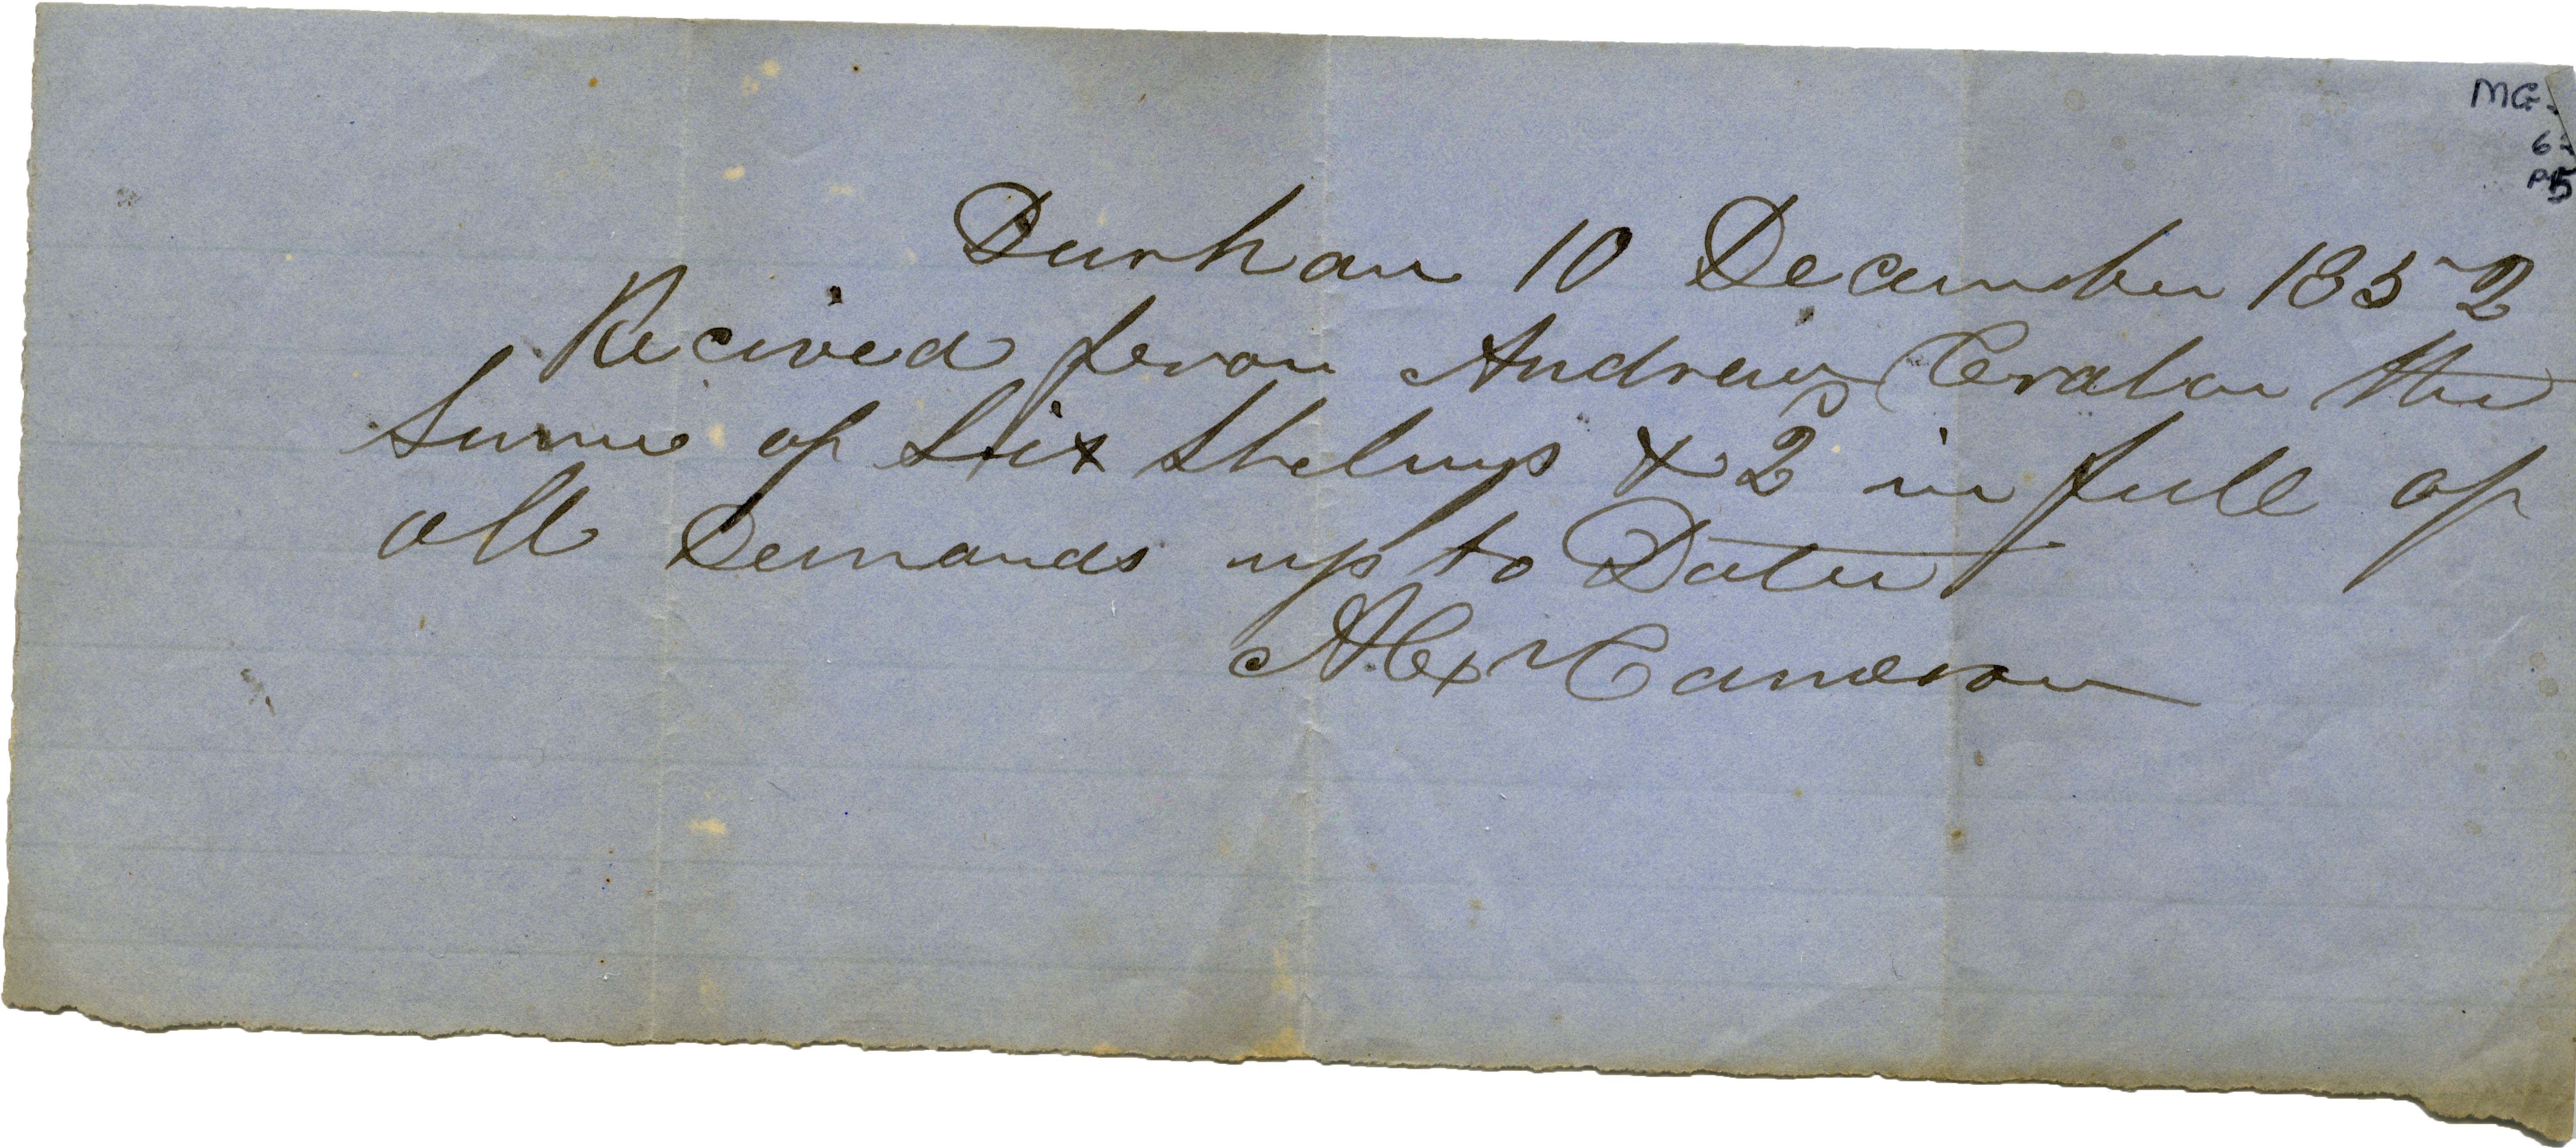 MG.
6
P15
Durham 10 December 1852
Recived from Andrew the
Sume of Six Shelings & 2 in full of
all Demands up to Date
Alex Cameron